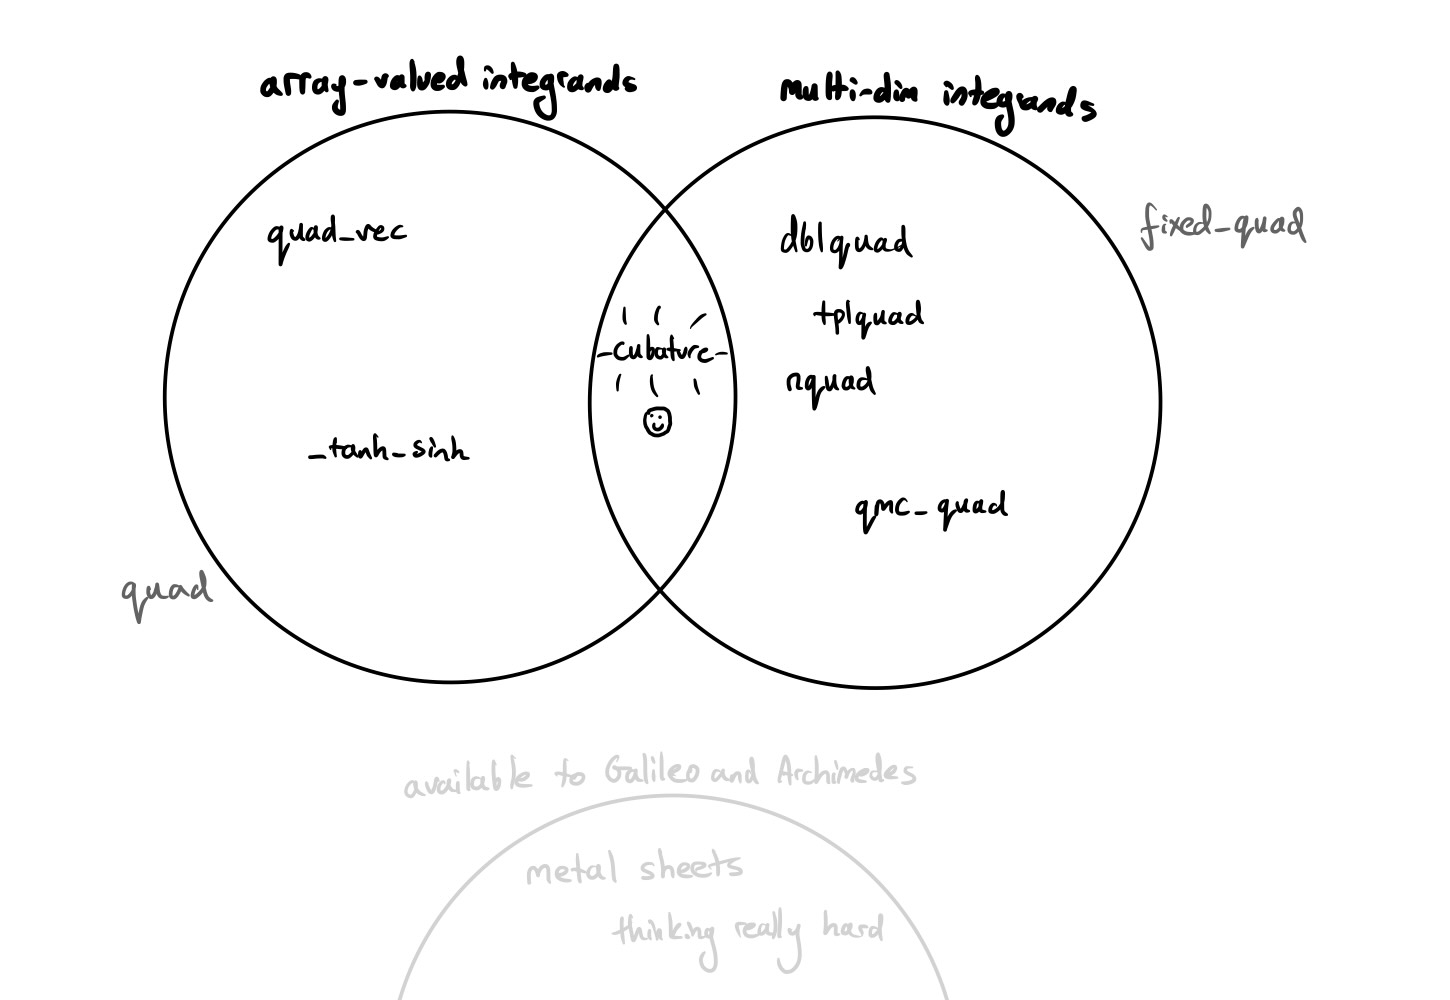 array-valued integrands
multi-dim integrands
quad_vec
dblquad
fixed_quad
tplquad
cubature
nquad
_tanh_sinh
qmc_quad
quad
available to Galileo and Archimedes
metal sheets
thinking really hard